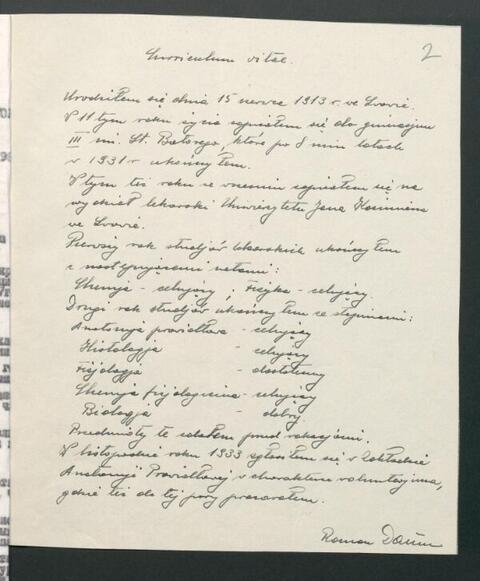 2
Curriculum vitae.
Urodziłem się dnia 15 czerwca 1913 r. we Lwowie.
W 11 tym roku życia zapisałem się do gimnazjum
III im. St. Batorego, które po 8 miu latach
w 1931 r ukończyłem.
W tym też roku we wrześniu zapisałem się na
wydział lekarski Uniwersytetu Jana Kazimierza
we Lwowie.
Pierwszy rok studjów lekarskich ukończyłem
z następującemi notami:
Chemja - celujący, Fizyka - celujący.
Drugi rok studjów ukończyłem ze stopniami:
Anatomja prawidłowa - celujący
Histologja - celujący
Fizjologja - dostateczny
Chemja fizjologiczna - celujący
Biologja - dobry.
Przedmioty te zdałem przed wakacjami.
W listopadzie roku 1933 zgłosiłem się w Zakładzie
Anatomji Prawidłowej w charakterze wolontarjusza,
gdzie też do tej pory pracowałem.
Roman